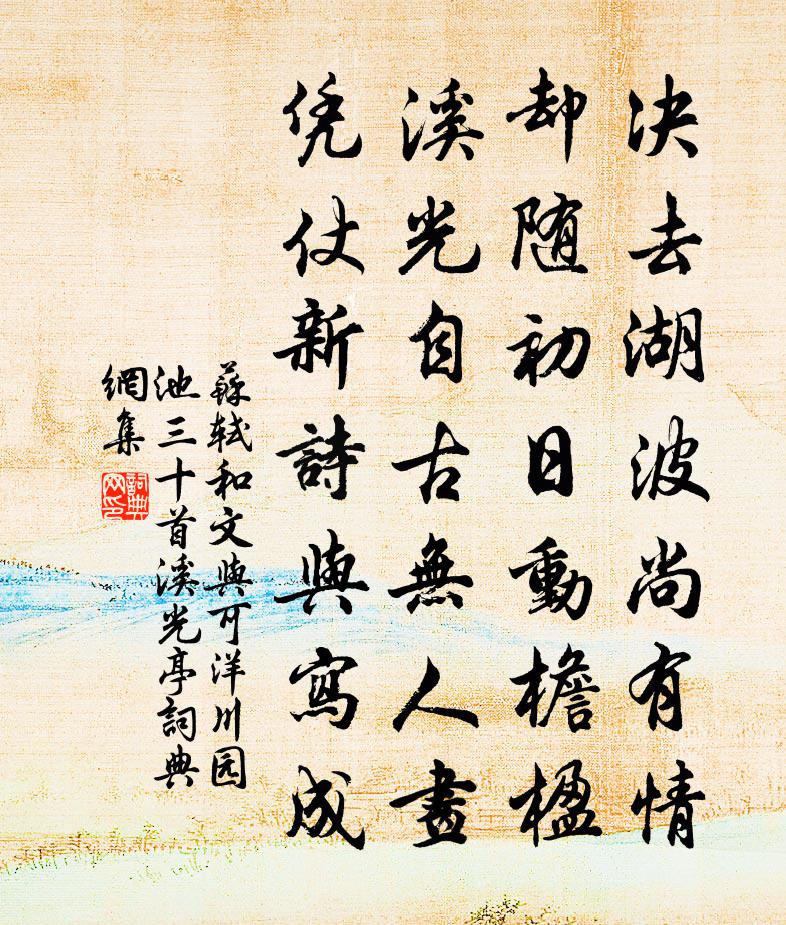 决去湖波尚有情
却随初日動檐楹
溪光自古無人畫
凭仗新詩與寫成
蘇轼和文與可洋川园
池三十首溪光亭詞典
網集
詞典
网印